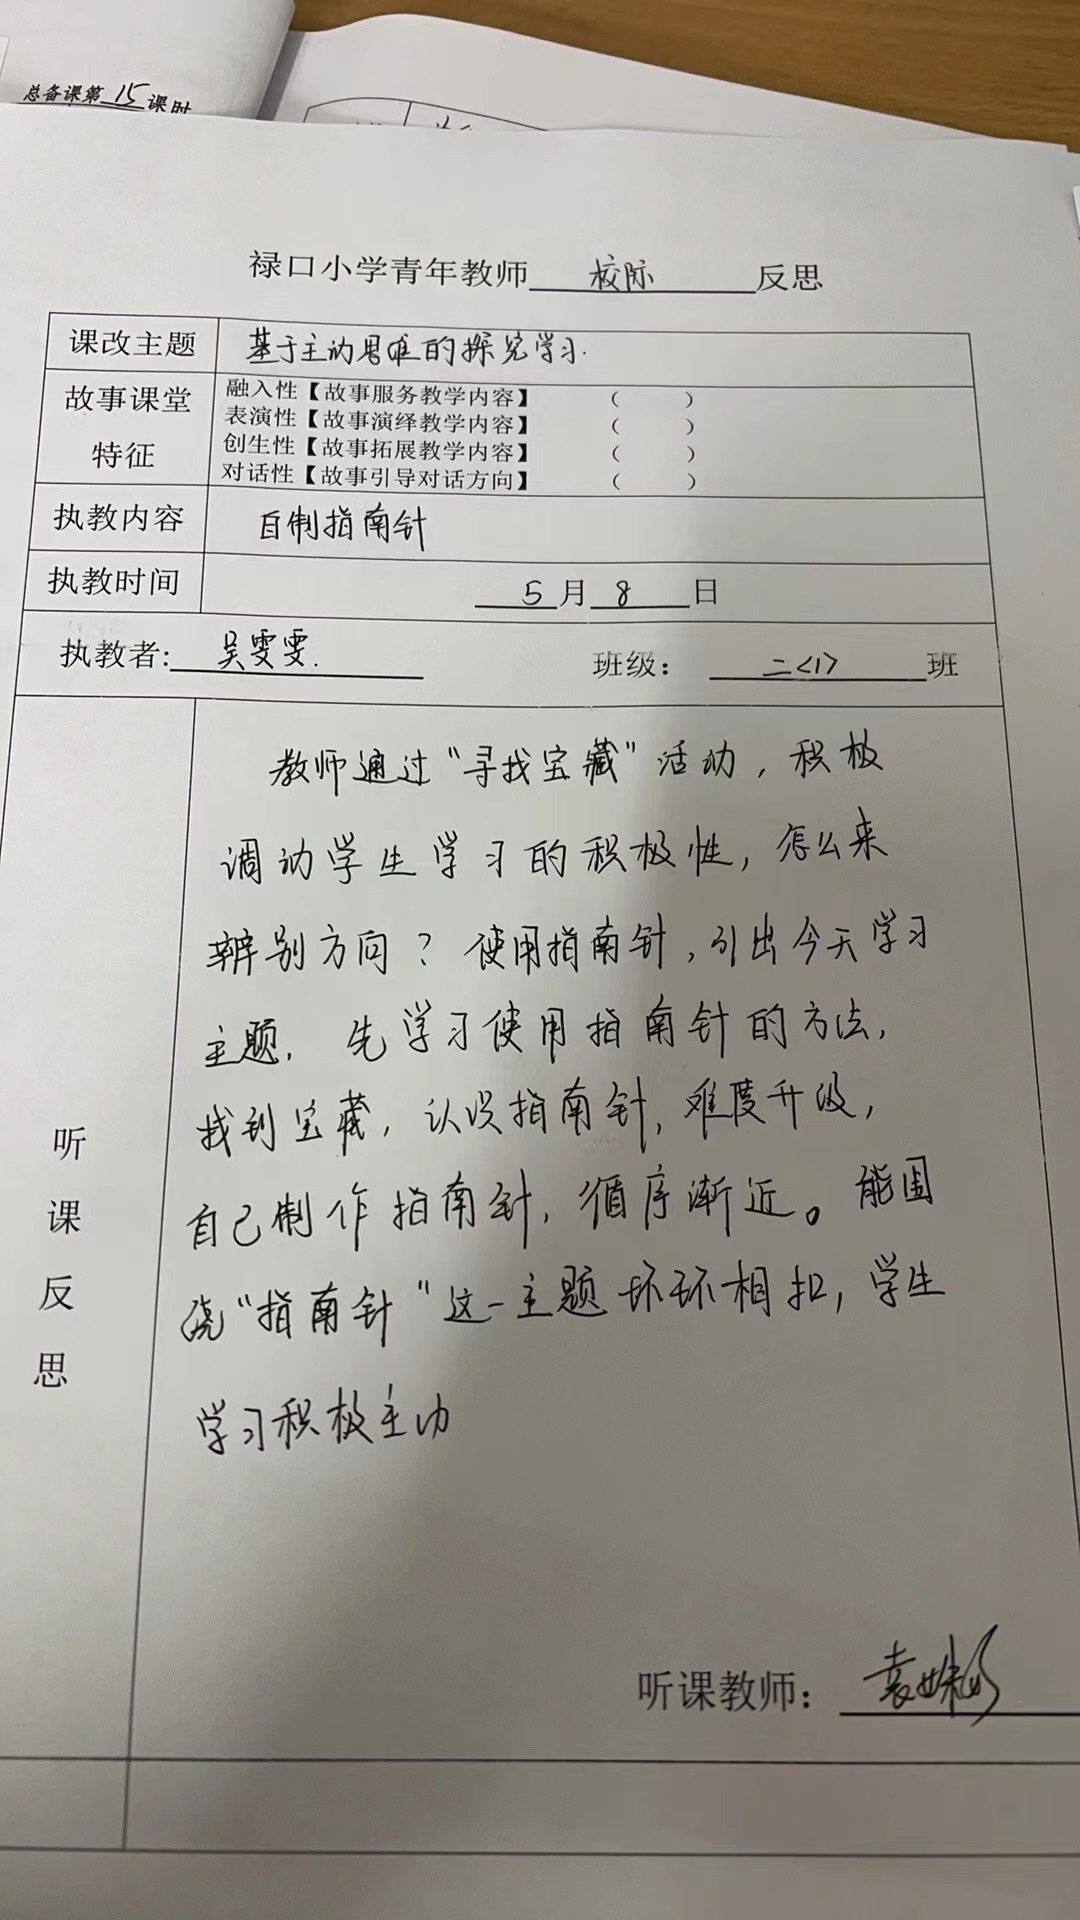 总备课第 15 课时
禄口小学青年教师 校际 反思
课改主题 基于主动思维的探究学习.
故事课堂
特征
融入性【故事服务教学内容】 ( )
表演性【故事演绎教学内容】 ( )
创生性【故事拓展教学内容】 ( )
对话性【故事引导对话方向】 ( )
执教内容 自制指南针
执教时间 5 月 8 日
执教者: 吴雯雯. 班级： 二<1> 班
教师通过“寻找宝藏”活动，积极
调动学生学习的积极性，怎么来
辨别方向？使用指南针，引出今天学习
主题. 先学习使用指南针的方法，
找到宝藏，认识指南针，难度升级，
自己制作指南针，循序渐近。能围
绕“指南针”这一主题环环相扣，学生
学习积极主动
听
课
反
思
听课教师： 袁